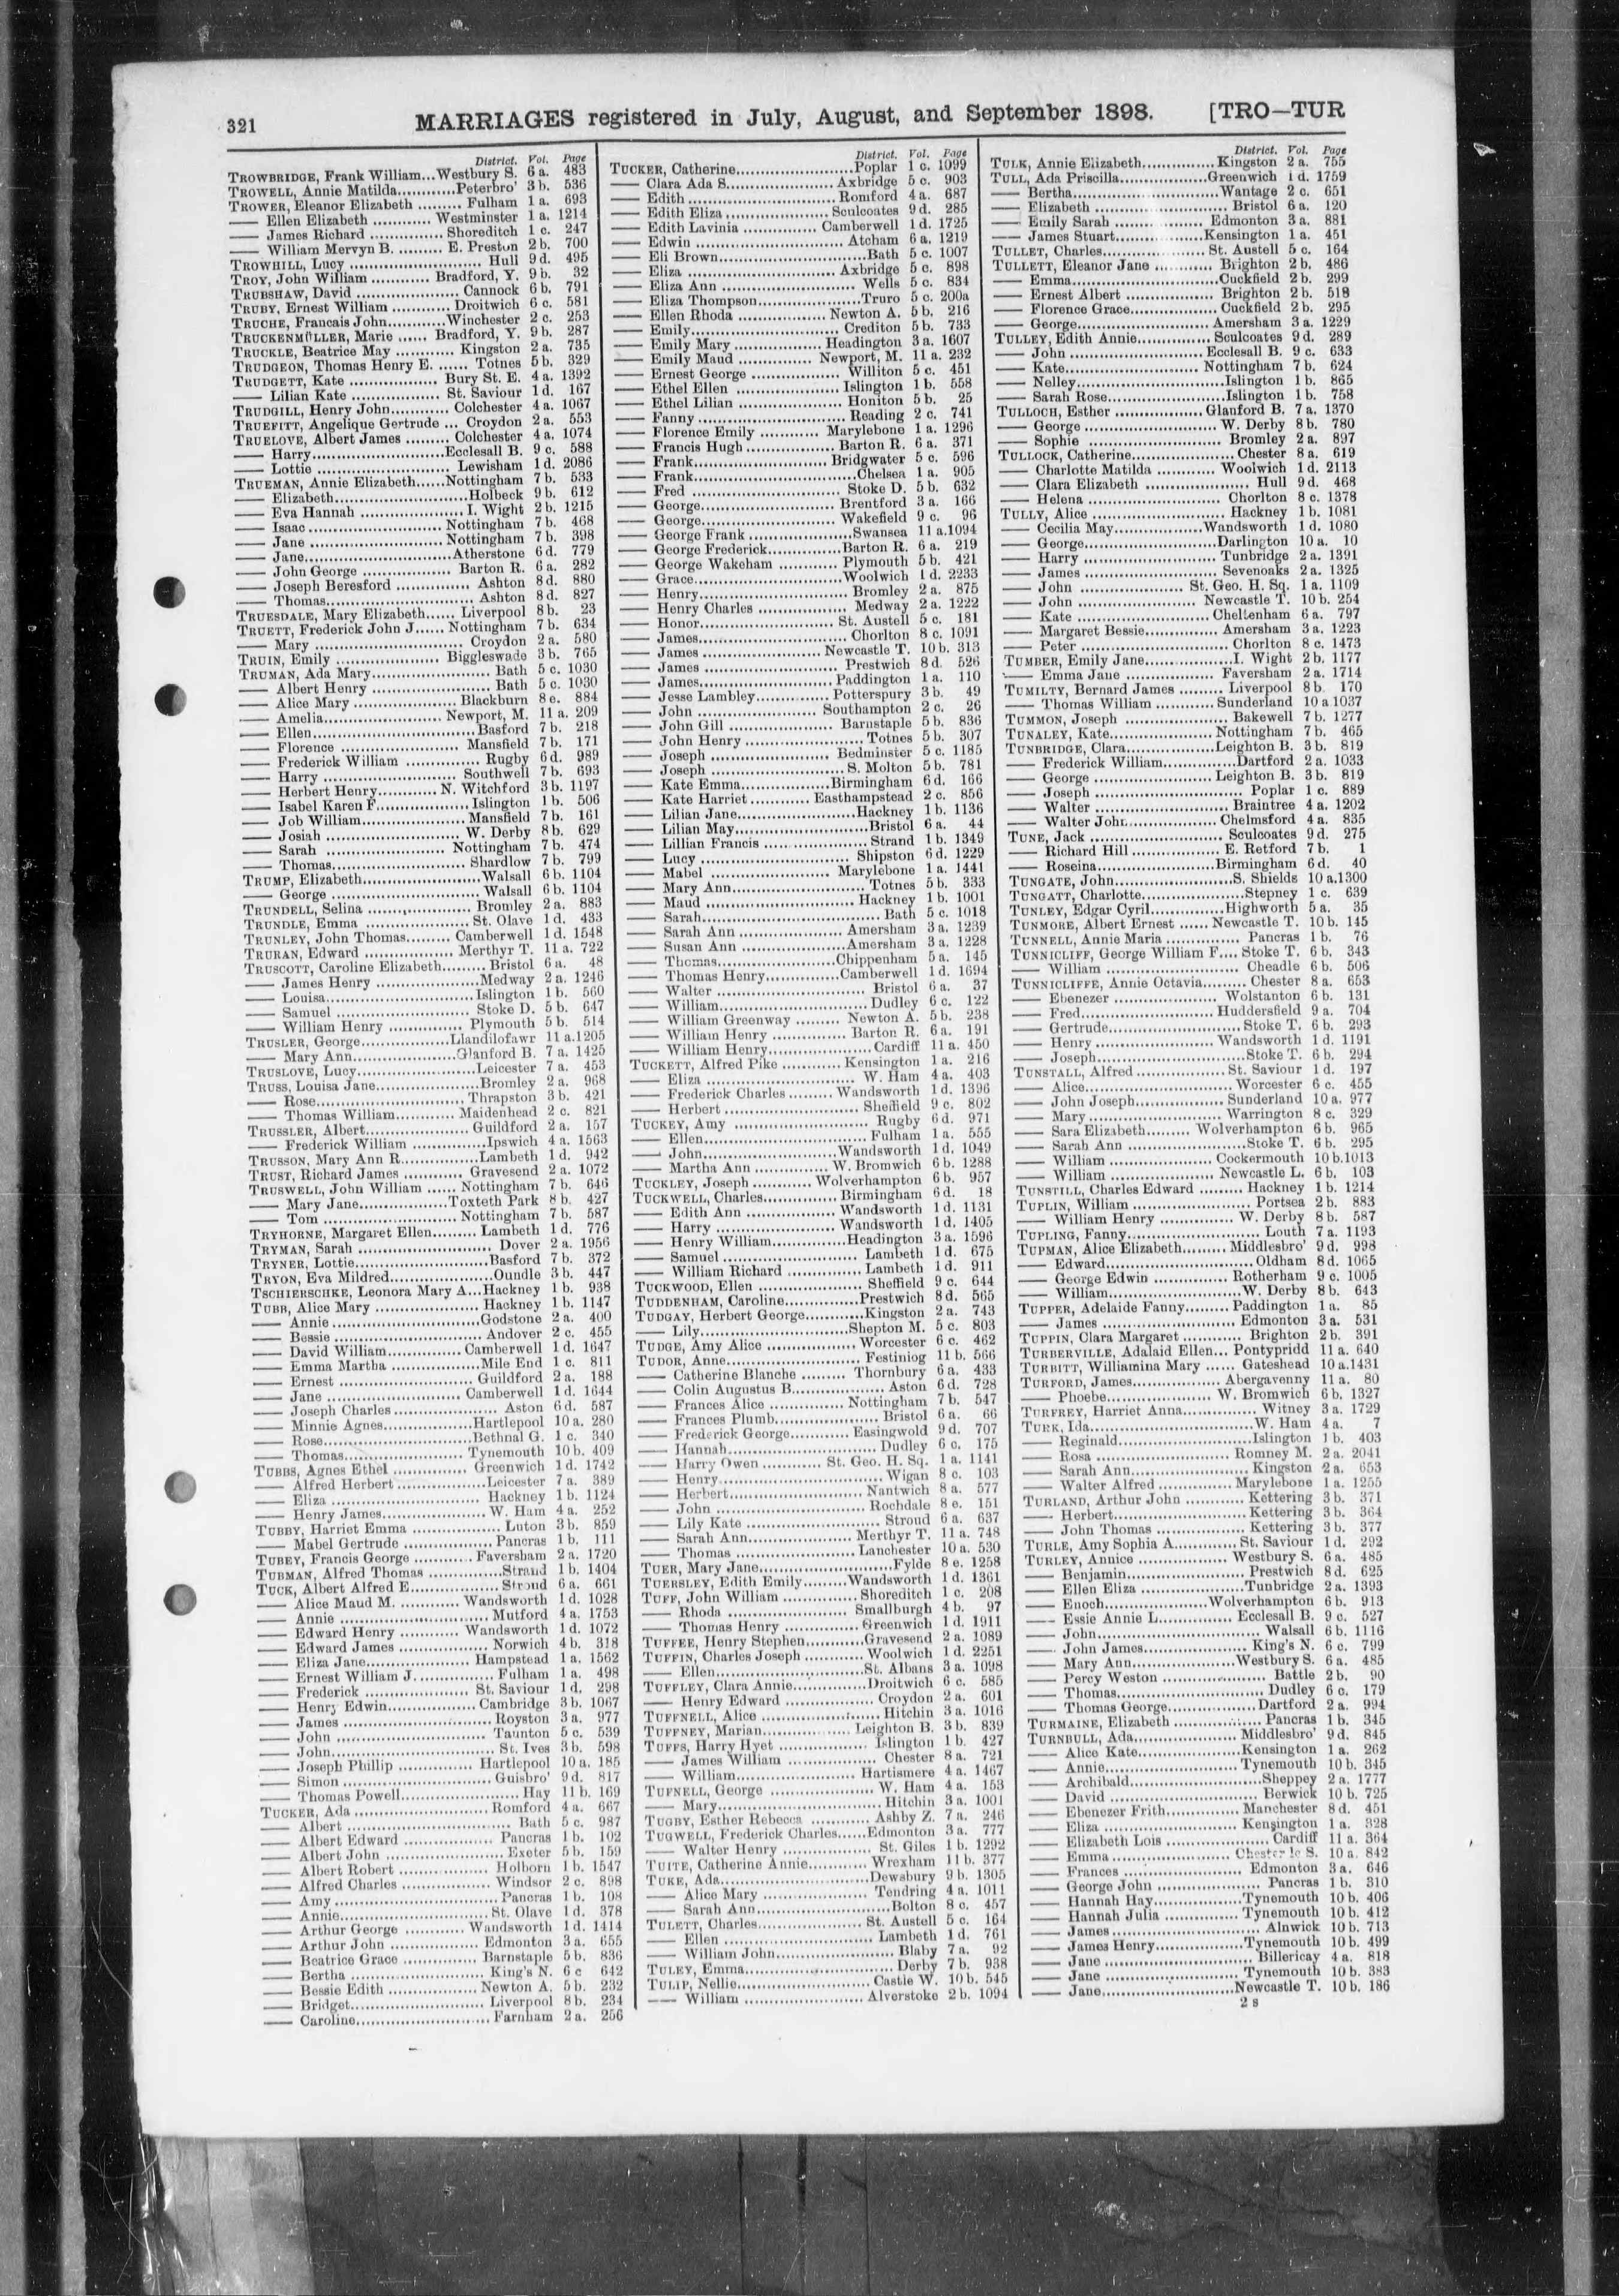 321 MARRIAGES registered in July, August, and September 1898. [TRO—TUR
District. Vol. Page
TROWBRIDGE, Frank William...Westbury S. 6 a. 483
TROWELL, Annie Matilda............Peterbro' 3 b. 536
TROWER, Eleanor Elizabeth ......... Fulham 1 a. 693
—— Ellen Elizabeth ............ Westminster 1 a. 1214
—— James Richard ............... Shoreditch 1 c. 247
—— William Mervyn B. ......... E. Preston 2 b. 700
TROWHILL, Lucy ........................... Hull 9 d. 495
TROY, John William ............ Bradford, Y. 9 b. 32
TRUBSHAW, David ..................... Cannock 6 b. 791
TRUBY, Ernest William ............ Droitwich 6 c. 581
TRUCHE, Francais John............Winchester 2 c. 253
TRUCKENMÜLLER, Marie ...... Bradford, Y. 9 b. 287
TRUCKLE, Beatrice May ............ Kingston 2 a. 735
TRUDGEON, Thomas Henry E. ...... Totnes 5 b. 329
TRUDGETT, Kate .................. Bury St. E. 4 a. 1392
—— Lilian Kate .................. St. Saviour 1 d. 167
TRUDGILL, Henry John............ Colchester 4 a. 1067
TRUEFITT, Angelique Gertrude ... Croydon 2 a. 553
TRUELOVE, Albert James ......... Colchester 4 a. 1074
—— Harry...........................Ecclesall B. 9 c. 588
—— Lottie ........................... Lewisham 1 d. 2086
TRUEMAN, Annie Elizabeth......Nottingham 7 b. 533
—— Elizabeth...........................Holbeck 9 b. 612
—— Eva Hannah ..................... I. Wight 2 b. 1215
—— Isaac ........................... Nottingham 7 b. 468
—— Jane ...........................Nottingham 7 b. 398
—— Jane..............................Atherstone 6 d. 779
—— John George .................. Barton R. 6 a. 282
—— Joseph Beresford ............... Ashton 8 d. 880
—— Thomas.............................. Ashton 8 d. 827
TRUESDALE, Mary Elizabeth...... Liverpool 8 b. 23
TRUETT, Frederick John J...... Nottingham 7 b. 634
—— Mary .............................. Croydon 2 a. 580
TRUIN, Emily ..................... Biggleswade 3 b. 765
TRUMAN, Ada Mary........................ Bath 5 c. 1030
—— Albert Henry ........................ Bath 5 c. 1030
—— Alice Mary ..................... Blackburn 8 e. 884
—— Amelia........................Newport, M. 11 a. 209
—— Ellen..............................Basford 7 b. 218
—— Florence ........................ Mansfield 7 b. 171
—— Frederick William ............... Rugby 6 d. 989
—— Harry ........................... Southwell 7 b. 693
—— Herbert Henry............ N. Witchford 3 b. 1197
—— Isabel Karen F................... Islington 1 b. 506
—— Job William..................... Mansfield 7 b. 161
—— Josiah ........................... W. Derby 8 b. 629
—— Sarah ........................ Nottingham 7 b. 474
—— Thomas........................... Shardlow 7 b. 799
TRUMP, Elizabeth........................Walsall 6 b. 1104
—— George .............................. Walsall 6 b. 1104
TRUNDELL, Selina ..................... Bromley 2 a. 883
TRUNDLE, Emma ..................... St. Olave 1 d. 433
TRUNLEY, John Thomas......... Camberwell 1 d. 1548
TRURAN, Edward .................. Merthyr T. 11 a. 722
TRUSCOTT, Caroline Elizabeth......... Bristol 6 a. 48
—— James Henry .....................Medway 2 a. 1246
—— Louisa..............................Islington 1 b. 560
—— Samuel ........................... Stoke D. 5 b. 647
—— William Henry ............... Plymouth 5 b. 514
TRUSLER, George..................Llandilofawr 11 a.1205
—— Mary Ann.....................Glanford B. 7 a. 1425
TRUSLOVE, Lucy........................Leicester 7 a. 453
TRUSS, Louisa Jane.....................Bromley 2 a. 968
—— Rose.............................. Thrapston 3 b. 421
—— Thomas William............ Maidenhead 2 c. 821
TRUSSLER, Albert..................... Guildford 2 a. 157
—— Frederick William ...............Ipswich 4 a. 1563
TRUSSON, Mary Ann R...............Lambeth 1 d. 942
TRUST, Richard James ............ Gravesend 2 a. 1072
TRUSWELL, John William ...... Nottingham 7 b. 646
—— Mary Jane..................Toxteth Park 8 b. 427
—— Tom ........................... Nottingham 7 b. 587
TRYHORNE, Margaret Ellen......... Lambeth 1 d. 776
TRYMAN, Sarah ........................... Dover 2 a. 1956
TRYNER, Lottie...........................Basford 7 b. 372
TRYON, Eva Mildred.....................Oundle 3 b. 447
TSCHIERSCHKE, Leonora Mary A...Hackney 1 b. 938
TUBB, Alice Mary ..................... Hackney 1 b. 1147
—— Annie ..............................Godstone 2 a. 400
—— Bessie .............................. Andover 2 c. 455
—— David William...............Camberwell 1 d. 1647
—— Emma Martha ..................Mile End 1 c. 811
—— Ernest ........................... Guildford 2 a. 188
—— Jane ........................... Camberwell 1 d. 1644
—— Joseph Charles ..................... Aston 6 d. 587
—— Minnie Agnes..................Hartlepool 10 a. 280
—— Rose..............................Bethnal G. 1 c. 340
—— Thomas........................ Tynemouth 10 b. 409
TUBBS, Agnes Ethel ............... Greenwich 1 d. 1742
—— Alfred Herbert..................Leicester 7 a. 389
—— Eliza .............................. Hackney 1 b. 1124
—— Henry James..................... W. Ham 4 a. 252
TUBBY, Harriet Emma .................. Luton 3 b. 859
—— Mabel Gertrude .................. Pancras 1 b. 111
TUBEY, Francis George ............ Faversham 2 a. 1720
TUBMAN, Alfred Thomas ...............Strand 1 b. 1404
TUCK, Albert Alfred E.................. Stroud 6 a. 661
—— Alice Maud M. ............ Wandsworth 1 d. 1028
—— Annie .............................. Mutford 4 a. 1753
—— Edward Henry ............ Wandsworth 1 d. 1072
—— Edward James .................. Norwich 4 b. 318
—— Eliza Jane..................... Hampstead 1 a. 1562
—— Ernest William J................. Fulham 1 a. 498
—— Frederick ..................... St. Saviour 1 d. 298
—— Henry Edwin..................Cambridge 3 b. 1067
—— James .............................. Royston 3 a. 977
—— John .............................. Taunton 5 c. 539
—— John.................................St. Ives 3 b. 598
—— Joseph Phillip ............... Hartlepool 10 a. 185
—— Simon .............................. Guisbro' 9 d. 817
—— Thomas Powell........................ Hay 11 b. 169
TUCKER, Ada ........................... Romford 4 a. 667
—— Albert ................................. Bath 5 c. 987
—— Albert Edward .................. Pancras 1 b. 102
—— Albert John ........................ Exeter 5 b. 159
—— Albert Robert .................. Holborn 1 b. 1547
—— Alfred Charles .................. Windsor 2 c. 898
—— Amy.................................Pancras 1 b. 108
—— Annie..............................St. Olave 1 d. 378
—— Arthur George ............ Wandsworth 1 d. 1414
—— Arthur John .................. Edmonton 3 a. 655
—— Beatrice Grace ............... Barnstaple 5 b. 836
—— Bertha ........................... King's N. 6 c 642
—— Bessie Edith .................. Newton A. 5 b. 232
—— Bridget........................... Liverpool 8 b. 234
—— Caroline........................... Farnham 2 a. 256
District. Vol. Page
TUCKER, Catherine........................Poplar 1 c. 1099
—— Clara Ada S..................... Axbridge 5 c. 903
—— Edith .............................. Romford 4 a. 687
—— Edith Eliza ..................... Sculcoates 9 d. 285
—— Edith Lavinia ............... Camberwell 1 d. 1725
—— Edwin .............................. Atcham 6 a. 1219
—— Eli Brown..............................Bath 5 c. 1007
—— Eliza .............................. Axbridge 5 c. 898
—— Eliza Ann ........................... Wells 5 c. 834
—— Eliza Thompson.....................Truro 5 c. 200a
—— Ellen Rhoda .................. Newton A. 5 b. 216
—— Emily.............................. Crediton 5 b. 733
—— Emily Mary .................. Headington 3 a. 1607
—— Emily Maud ............... Newport, M. 11 a. 232
—— Ernest George .................. Williton 5 c. 451
—— Ethel Ellen ..................... Islington 1 b. 558
—— Ethel Lilian ..................... Honiton 5 b. 25
—— Fanny .............................. Reading 2 c. 741
—— Florence Emily ............ Marylebone 1 a. 1296
—— Francis Hugh .................. Barton R. 6 a. 371
—— Frank........................... Bridgwater 5 c. 596
—— Frank.................................Chelsea 1 a. 905
—— Fred .............................. Stoke D. 5 b. 632
—— George........................... Brentford 3 a. 166
—— George........................... Wakefield 9 c. 96
—— George Frank .....................Swansea 11 a.1094
—— George Frederick...............Barton R. 6 a. 219
—— George Wakeham ............ Plymouth 5 b. 421
—— Grace..............................Woolwich 1 d. 2233
—— Henry.............................. Bromley 2 a. 875
—— Henry Charles .................. Medway 2 a. 1222
—— Honor........................... St. Austell 5 c. 181
—— James.............................. Chorlton 8 c. 1091
—— James ........................ Newcastle T. 10 b. 313
—— James ........................... Prestwich 8 d. 526
—— James...........................Paddington 1 a. 110
—— Jesse Lambley............... Potterspury 3 b. 49
—— John ........................ Southampton 2 c. 26
—— John Gill ..................... Barnstaple 5 b. 836
—— John Henry ........................ Totnes 5 b. 307
—— Joseph ........................ Bedminster 5 c. 1185
—— Joseph ........................... S. Molton 5 b. 781
—— Kate Emma..................Birmingham 6 d. 166
—— Kate Harriet ............ Easthampstead 2 c. 856
—— Lilian Jane........................Hackney 1 b. 1136
—— Lilian May...........................Bristol 6 a. 44
—— Lillian Francis ..................... Strand 1 b. 1349
—— Lucy .............................. Shipston 6 d. 1229
—— Mabel ........................ Marylebone 1 a. 1441
—— Mary Ann........................... Totnes 5 b. 333
—— Maud .............................. Hackney 1 b. 1001
—— Sarah.................................... Bath 5 c. 1018
—— Sarah Ann ..................... Amersham 3 a. 1239
—— Susan Ann .....................Amersham 3 a. 1228
—— Thomas........................Chippenham 5 a. 145
—— Thomas Henry...............Camberwell 1 d. 1694
—— Walter .............................. Bristol 6 a. 37
—— William..............................Dudley 6 c. 122
—— William Greenway ......... Newton A. 5 b. 238
—— William Henry ............... Barton R. 6 a. 191
—— William Henry.....................Cardiff 11 a. 450
TUCKETT, Alfred Pike ............ Kensington 1 a. 216
—— Eliza .............................. W. Ham 4 a. 403
—— Frederick Charles ......... Wandsworth 1 d. 1396
—— Herbert ........................... Sheffield 9 c. 802
TUCKEY, Amy ........................... Rugby 6 d. 971
—— Ellen................................. Fulham 1 a. 555
—— John...........................Wandsworth 1 d. 1049
—— Martha Ann ............... W. Bromwich 6 b. 1288
TUCKLEY, Joseph ............ Wolverhampton 6 b. 957
TUCKWELL, Charles............... Birmingham 6 d. 18
—— Edith Ann .................. Wandsworth 1 d. 1131
—— Harry ........................ Wandsworth 1 d. 1405
—— Henry William...............Headington 3 a. 1596
—— Samuel ........................... Lambeth 1 d. 675
—— William Richard ............... Lambeth 1 d. 911
TUCKWOOD, Ellen ..................... Sheffield 9 c. 644
TUDDENHAM, Caroline...............Prestwich 8 d. 565
TUDGAY, Herbert George............Kingston 2 a. 743
—— Lily..............................Shepton M. 5 c. 803
TUDGE, Amy Alice .................. Worcester 6 c. 462
TUDOR, Anne........................... Festiniog 11 b. 566
—— Catherine Blanche ......... Thornbury 6 a. 433
—— Colin Augustus B.................. Aston 6 d. 728
—— Frances Alice ............... Nottingham 7 b. 547
—— Frances Plumb..................... Bristol 6 a. 66
—— Frederick George............ Easingwold 9 d. 707
—— Hannah.............................. Dudley 6 c. 175
—— Harry Owen ............ St. Geo. H. Sq. 1 a. 1141
—— Henry................................. Wigan 8 c. 103
—— Herbert........................... Nantwich 8 a. 577
—— John .............................. Rochdale 8 e. 151
—— Lily Kate ........................... Stroud 6 a. 637
—— Sarah Ann..................... Merthyr T. 11 a. 748
—— Thomas ........................ Lanchester 10 a. 530
TUER, Mary Jane...........................Fylde 8 e. 1258
TUERSLEY, Edith Emily.........Wandsworth 1 d. 1361
TUFF, John William ............... Shoreditch 1 c. 208
—— Rhoda ........................ Smallburgh 4 b. 97
—— Thomas Henry ............... Greenwich 1 d. 1911
TUFFEE, Henry Stephen............Gravesend 2 a. 1089
TUFFIN, Charles Joseph ............ Woolwich 1 d. 2251
—— Ellen..............................St. Albans 3 a. 1098
TUFFLEY, Clara Annie...............Droitwich 6 c. 585
—— Henry Edward .................. Croydon 2 a. 601
TUFFNELL, Alice ........................ Hitchin 3 a. 1016
TUFFNEY, Marian.................. Leighton B. 3 b. 839
TUFFS, Harry Hyet .................. Islington 1 b. 427
—— James William .................. Chester 8 a. 721
—— William........................ Hartismere 4 a. 1467
TUFNELL, George ..................... W. Ham 4 a. 153
—— Mary................................. Hitchin 3 a. 1001
TUGBY, Esther Rebecca ............ Ashby Z. 7 a. 246
TUGWELL, Frederick Charles......Edmonton 3 a. 777
—— Walter Henry .................. St. Giles 1 b. 1292
TUITE, Catherine Annie............ Wrexham 11 b. 377
TUKE, Ada..............................Dewsbury 9 b. 1305
—— Alice Mary ..................... Tendring 4 a. 1011
—— Sarah Ann...........................Bolton 8 c. 457
TULETT, Charles..................... St. Austell 5 c. 164
—— Ellen .............................. Lambeth 1 d. 761
—— William John........................ Blaby 7 a. 92
TULEY, Emma.............................. Derby 7 b. 938
TULIP, Nellie........................... Castle W. 10 b. 545
—— William ........................ Alverstoke 2 b. 1094
District. Vol. Page
TULK, Annie Elizabeth...............Kingston 2 a. 755
TULL, Ada Priscilla..................Greenwich 1 d. 1759
—— Bertha..............................Wantage 2 c. 651
—— Elizabeth ........................... Bristol 6 a. 120
—— Emily Sarah .................. Edmonton 3 a. 881
—— James Stuart..................Kensington 1 a. 451
TULLET, Charles..................... St. Austell 5 c. 164
TULLETT, Eleanor Jane ............ Brighton 2 b. 486
—— Emma..............................Cuckfield 2 b. 299
—— Ernest Albert .................. Brighton 2 b. 518
—— Florence Grace.................. Cuckfield 2 b. 295
—— George........................... Amersham 3 a. 1229
TULLEY, Edith Annie............... Sculcoates 9 d. 289
—— John ........................ Ecclesall B. 9 c. 633
—— Kate........................... Nottingham 7 b. 624
—— Nelley..............................Islington 1 b. 865
—— Sarah Rose........................Islington 1 b. 758
TULLOCH, Esther .................. Glanford B. 7 a. 1370
—— George ........................... W. Derby 8 b. 780
—— Sophie ........................... Bromley 2 a. 897
TULLOCK, Catherine..................... Chester 8 a. 619
—— Charlotte Matilda ............ Woolwich 1 d. 2113
—— Clara Elizabeth ..................... Hull 9 d. 468
—— Helena ........................... Chorlton 8 c. 1378
TULLY, Alice ........................... Hackney 1 b. 1081
—— Cecilia May..................Wandsworth 1 d. 1080
—— George...........................Darlington 10 a. 10
—— Harry ........................... Tunbridge 2 a. 1391
—— James ........................... Sevenoaks 2 a. 1325
—— John ..................... St. Geo. H. Sq. 1 a. 1109
—— John ........................ Newcastle T. 10 b. 254
—— Kate ........................... Cheltenham 6 a. 797
—— Margaret Bessie............... Amersham 3 a. 1223
—— Peter .............................. Chorlton 8 c. 1473
TUMBER, Emily Jane..................I. Wight 2 b. 1177
—— Emma Jane .................. Faversham 2 a. 1714
TUMILTY, Bernard James ......... Liverpool 8 b. 170
—— Thomas William ............ Sunderland 10 a 1037
TUMMON, Joseph ..................... Bakewell 7 b. 1277
TUNALEY, Kate..................... Nottingham 7 b. 465
TUNBRIDGE, Clara..................Leighton B. 3 b. 819
—— Frederick William...............Dartford 2 a. 1033
—— George ........................ Leighton B. 3 b. 819
—— Joseph .............................. Poplar 1 c. 889
—— Walter ........................... Braintree 4 a. 1202
—— Walter John.................. Chelmsford 4 a. 835
TUNE, Jack ........................... Sculcoates 9 d. 275
—— Richard Hill .................. E. Retford 7 b. 1
—— Roseina........................Birmingham 6 d. 40
TUNGATE, John........................S. Shields 10 a.1300
TUNGATT, Charlotte.....................Stepney 1 c. 639
TUNLEY, Edgar Cyril...............Highworth 5 a. 35
TUNMORE, Albert Ernest ...... Newcastle T. 10 b. 145
TUNNELL, Annie Maria ............... Pancras 1 b. 76
TUNNICLIFF, George William F.... Stoke T. 6 b. 343
—— William ........................... Cheadle 6 b. 506
TUNNICLIFFE, Annie Octavia......... Chester 8 a. 653
—— Ebenezer ..................... Wolstanton 6 b. 131
—— Fred........................... Huddersfield 9 a. 704
—— Gertrude...........................Stoke T. 6 b. 293
—— Henry ........................ Wandsworth 1 d. 1191
—— Joseph..............................Stoke T. 6 b. 294
TUNSTALL, Alfred .................. St. Saviour 1 d. 197
—— Alice.............................. Worcester 6 c. 455
—— John Joseph.................. Sunderland 10 a. 977
—— Mary........................... Warrington 8 c. 329
—— Sara Elizabeth......... Wolverhampton 6 b. 965
—— Sarah Ann ........................Stoke T. 6 b. 295
—— William ..................... Cockermouth 10 b.1013
—— William ..................... Newcastle L. 6 b. 103
TUNSTILL, Charles Edward ......... Hackney 1 b. 1214
TUPLIN, William ........................ Portsea 2 b. 883
—— William Henry ............... W. Derby 8 b. 587
TUPLING, Fanny........................... Louth 7 a. 1193
TUPMAN, Alice Elizabeth......... Middlesbro' 9 d. 998
—— Edward..............................Oldham 8 d. 1065
—— George Edwin ............... Rotherham 9 c. 1005
—— William...........................W. Derby 8 b. 643
TUPPER, Adelaide Fanny......... Paddington 1 a. 85
—— James ........................... Edmonton 3 a. 531
TUPPIN, Clara Margaret ............ Brighton 2 b. 391
TURBERVILLE, Adalaid Ellen... Pontypridd 11 a. 640
TURBITT, Williamina Mary ...... Gateshead 10 a.1431
TURFORD, James..................... Abergavenny 11 a. 80
—— Phoebe..................... W. Bromwich 6 b. 1327
TURFREY, Harriet Anna............... Witney 3 a. 1729
TURK, Ida.................................W. Ham 4 a. 7
—— Reginald...........................Islington 1 b. 403
—— Rosa ........................... Romney M. 2 a. 2041
—— Sarah Ann........................ Kingston 2 a. 653
—— Walter Alfred ............... Marylebone 1 a. 1255
TURLAND, Arthur John ............ Kettering 3 b. 371
—— Herbert........................... Kettering 3 b. 364
—— John Thomas .................. Kettering 3 b. 377
TURLE, Amy Sophia A............. St. Saviour 1 d. 292
TURLEY, Annice .................. Westbury S. 6 a. 485
—— Benjamin........................ Prestwich 8 d. 625
—— Ellen Eliza .....................Tunbridge 2 a. 1393
—— Enoch.....................Wolverhampton 6 b. 913
—— Essie Annie L............... Ecclesall B. 9 c. 527
—— John................................. Walsall 6 b. 1116
—— John James..................... King's N. 6 c. 799
—— Mary Ann..................Westbury S. 6 a. 485
—— Percy Weston ..................... Battle 2 b. 90
—— Thomas.............................. Dudley 6 c. 179
—— Thomas George..................Dartford 2 a. 994
TURMAINE, Elizabeth .................. Pancras 1 b. 345
TURNBULL, Ada..................... Middlesbro' 9 d. 845
—— Alice Kate.....................Kensington 1 a. 262
—— Annie........................... Tynemouth 10 b. 345
—— Archibald...........................Sheppey 2 a. 1777
—— David .............................. Berwick 10 b. 725
—— Ebenezer Frith............... Manchester 8 d. 451
—— Eliza ........................... Kensington 1 a. 328
—— Elizabeth Lois ..................... Cardiff 11 a. 364
—— Emma ..................... Chester le S. 10 a. 842
—— Frances ........................ Edmonton 3 a. 646
—— George John ..................... Pancras 1 b. 310
—— Hannah Hay..................Tynemouth 10 b. 406
—— Hannah Julia ............... Tynemouth 10 b. 412
—— James.............................. Alnwick 10 b. 713
—— James Henry..................Tynemouth 10 b. 499
—— Jane .............................. Billericay 4 a. 818
—— Jane ........................... Tynemouth 10 b. 383
—— Jane...........................Newcastle T. 10 b. 186
2 s